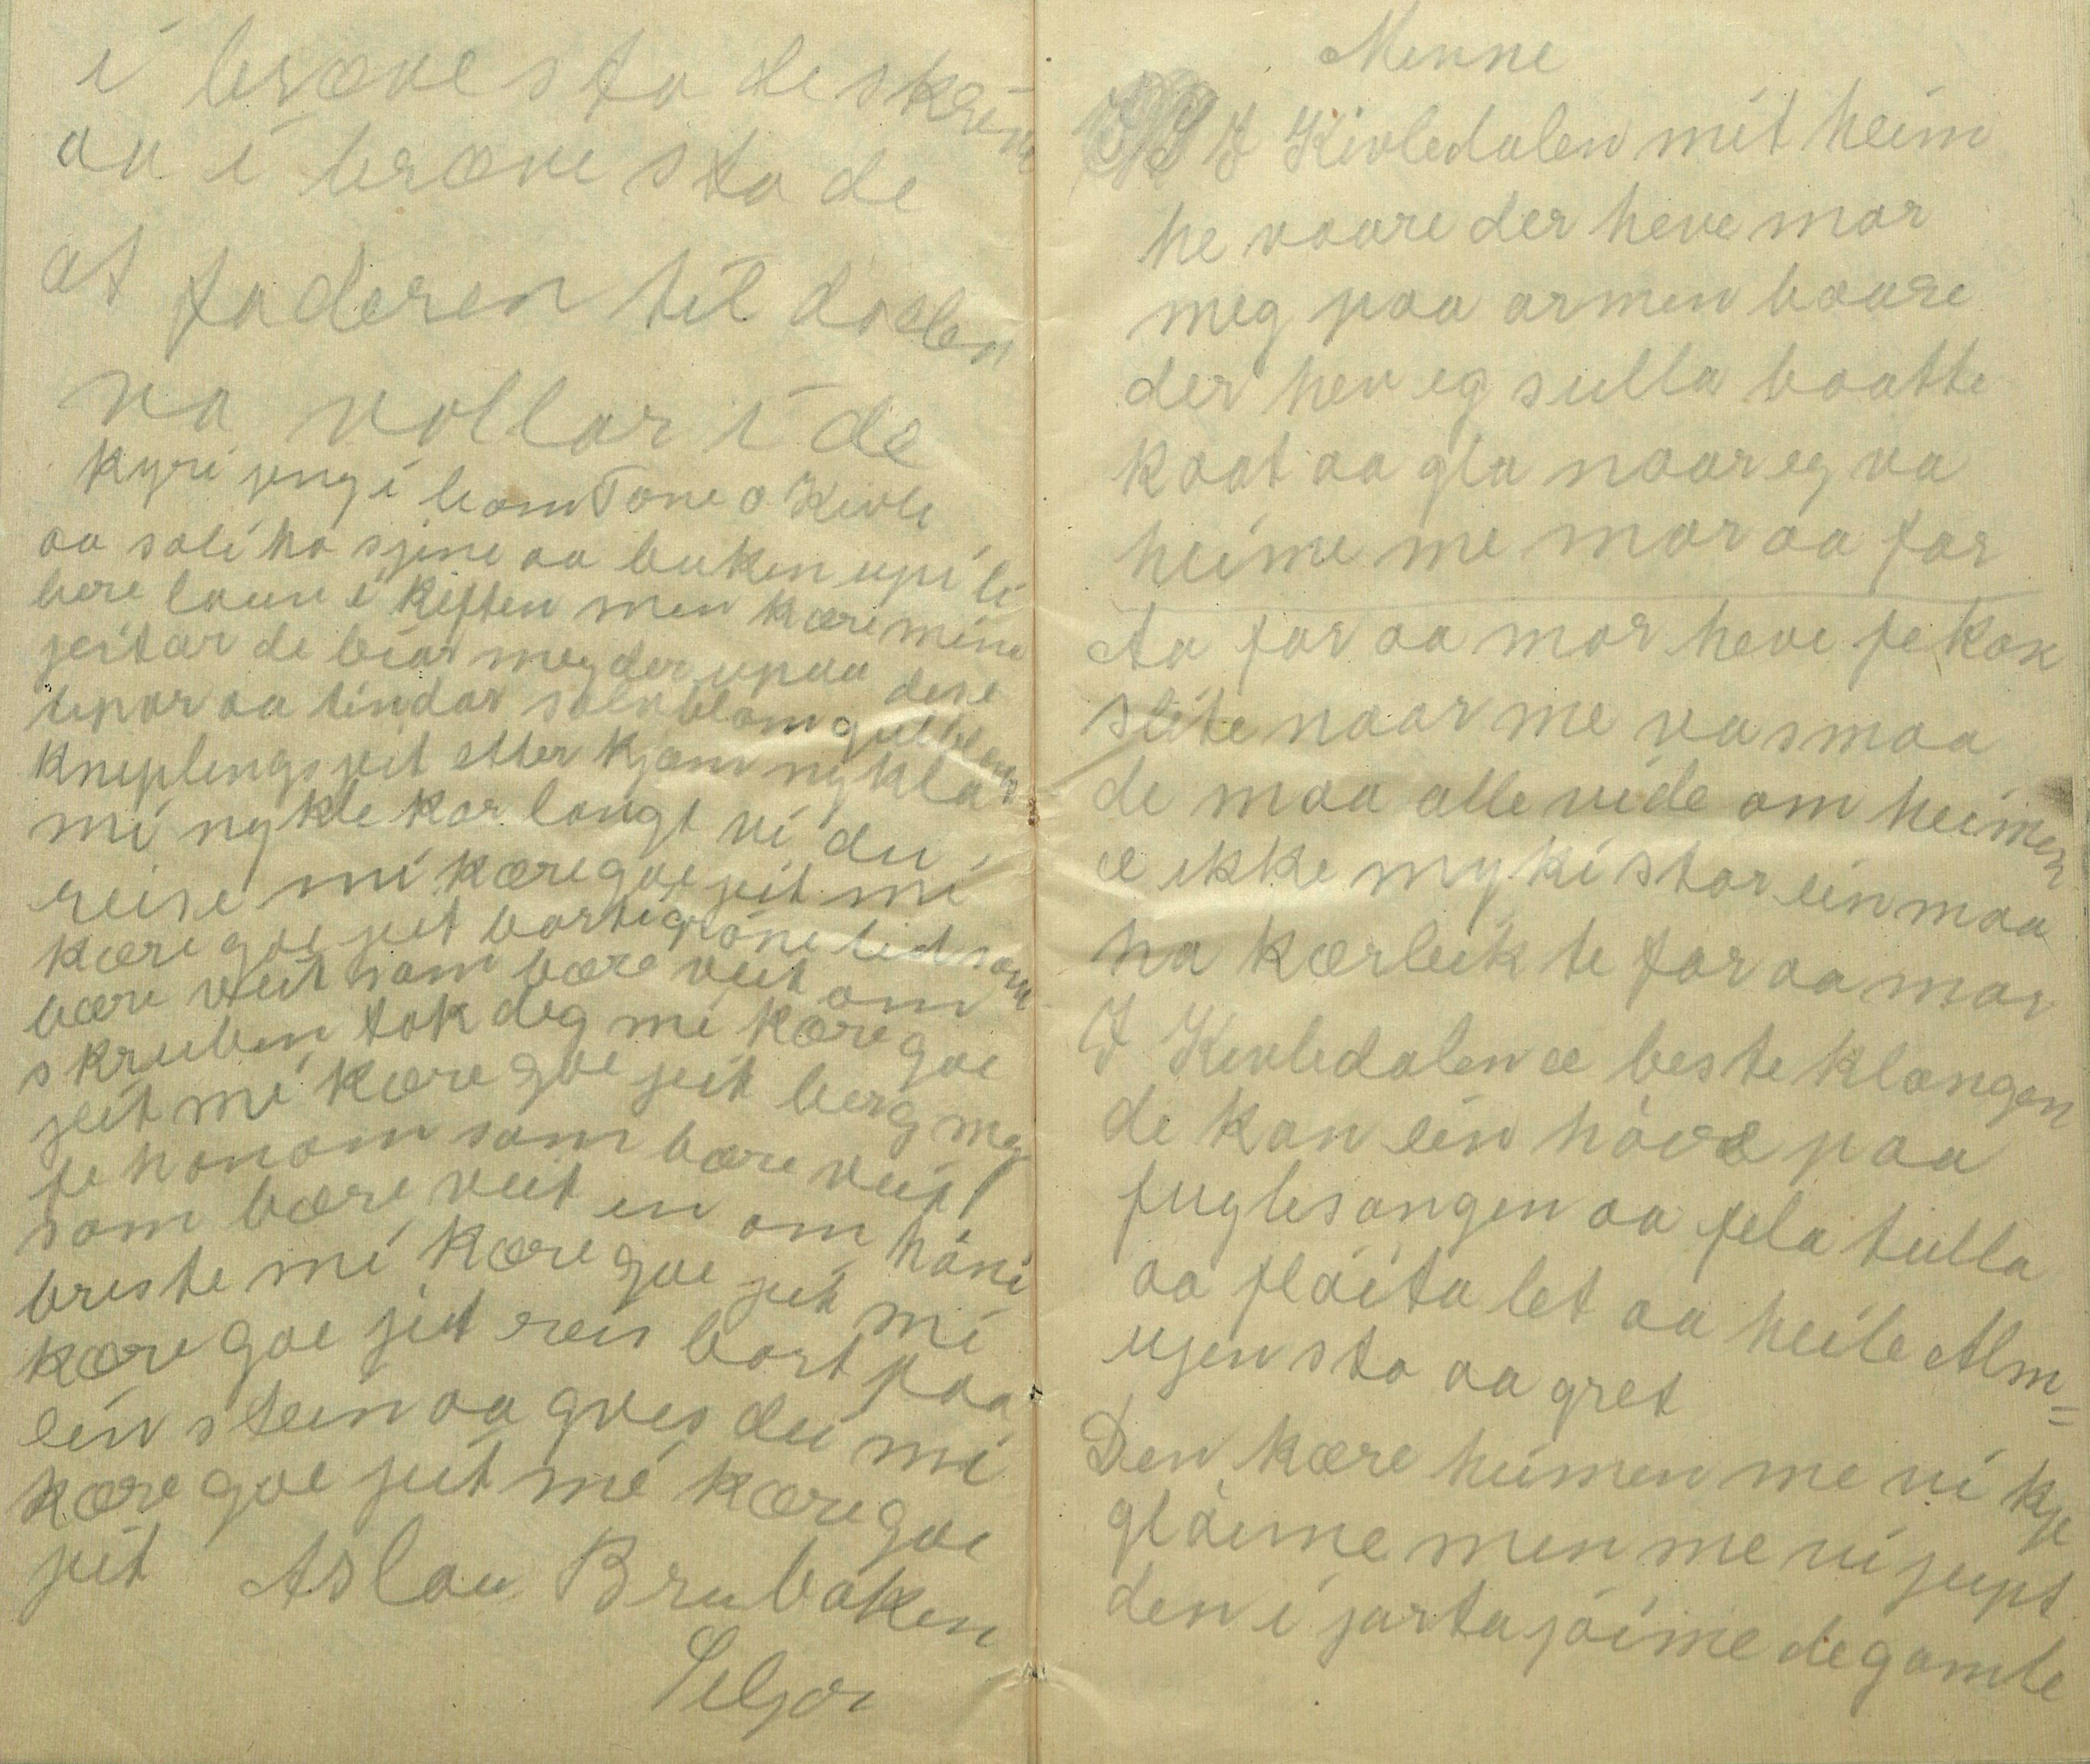 i bræve sto de skreve
aa i bræve sto de
at faderen til doelen
va vollar i de
kyri jeng i leam Tone o Kivle
aa soli ho sjine aa buken upi li
bere laun i kjeften men kære mine
jeitar de biar meg der upaa dese
tipar aa tindar solvblom gullblom
kneplingsjeit etter kjem nyklar
mi nykle kor langt vi du
reise mi kæregoe jeit mi
kære goe jeit borti gröne lid som
bære veit som bære veit om
skruben tok deg mi kære goe
jeit mi kære goe jeit berg meg
te honom som bære veit
som bære veit en om höni
breste mi kære goe jeit mi
kære goe jeit reis bort paa
ein stein aa gves du mi
kære goe jeit mi kære goe
jeit Aslau Brubaken
Seljor
Menne
I Kivledalen mit heim
he vaare der heve mor
meg paa armen baare
der hev eg sulla baatte
kaat aa gla naar eg va
heime me mor aa far
Aa far aa mor heve fekk
slite naar me va smaa
de maa alle vide om heimen
æ ikke myki stor ein maa
ha kærleik te far aa mor
I Kivledalen æ beste klangen
de kan ein höve paa
fuglesangen aa fela tulla
aa flöita let aa heile Alm=
ugen sto aa gret
Den kære heimen me vi kje
glöime men me vi jupt
den i jarta jöime de gamle